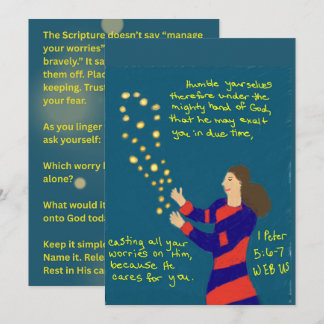 The Scripture doesn't say "manage
your worries"
bravely." It sa
them off. Plac
keeping. Trust
your fear.
As you linger
ask yourself:
Which worry
alone?
What would it
onto God toda
Keep it simple
Name it. Rele
Rest in His ca
Humble yourselves
therefore under the
mighty hand of God,
that he may exalt
you in due time,
casting all your
worries on Him,
because He
cares for you.
1 Peter
5:6-7
WEB US